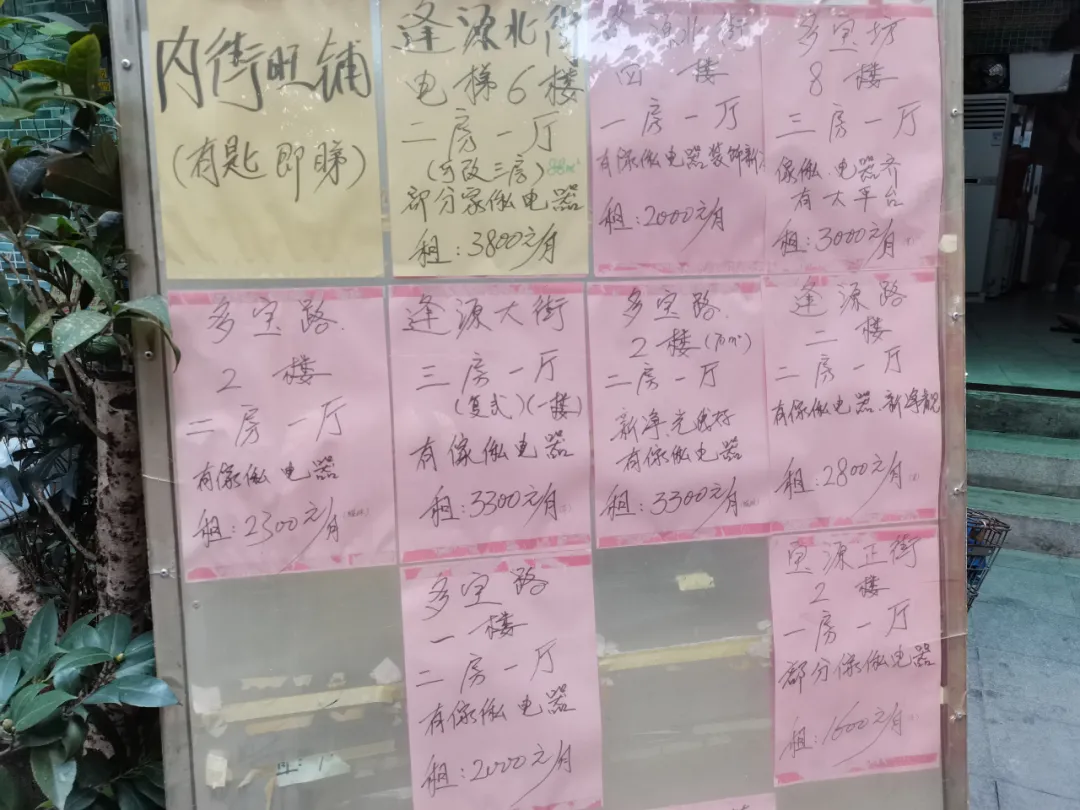 内街旺铺
(有匙即睇)
逢源北街
电梯6楼
二房一厅
(可改三房)88m²
部分家俬电器
租:3800元/月
源北街
四楼
一房一厅
有傢俬电器装饰新
租:2000元/月
多宝坊
8楼
三房一厅
傢俬电器齐
有大平台
租:3000元/月
多宝路
2楼
二房一厅
有傢俬电器
租:2300元/月
逢源大街
三房一厅
(复式)(一楼)
有傢俬电器
租:3300元/月
多宝路
2楼(70m²)
二房一厅
新净、光线好
有傢俬电器
租:3300元/月
逢源路
二楼
二房一厅
有傢俬电器、新净靓
租:2800元/月
多宝路
一楼
二房一厅
有傢俬电器
租:2000元/月
宝源正街
2楼
一房一厅
部分傢俬电器
租:1600元/月